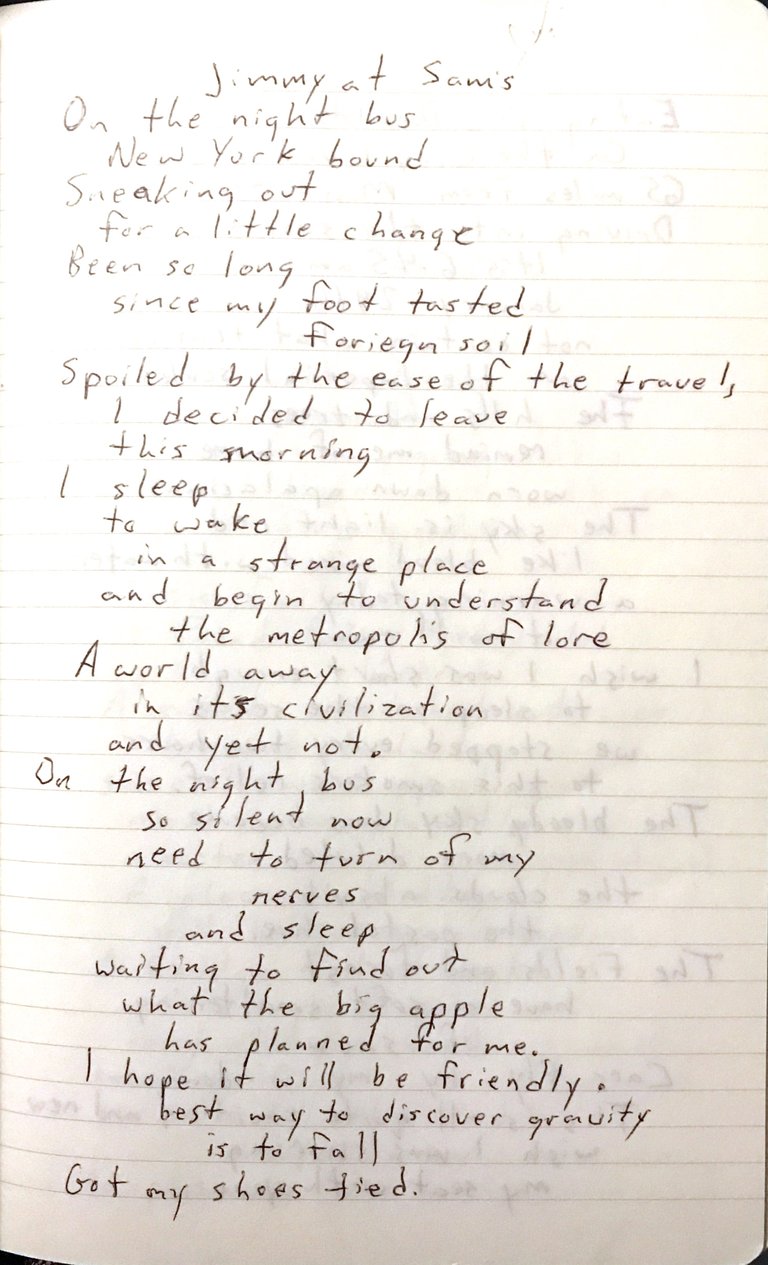 Jimmy at Sam's
On the night bus
New York bound
Sneaking out
for a little change
Been so long
since my foot tasted
foriegn soil
Spoiled by the ease of the travel,
I decided to leave
this morning
I sleep
to wake
in a strange place
and begin to understand
the metropolis of lore
A world away
in its civilization
and yet not.
On the night bus
so silent now
need to turn of my
nerves
and sleep
waiting to find out
what the big apple
has planned for me.
I hope it will be friendly.
best way to discover gravity
is to fall
Got my shoes tied.